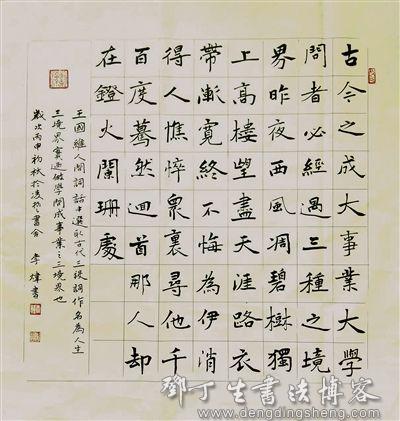 古今之成大事業大學
問者必經過三種之境
界昨夜西風凋碧樹獨
上高樓望盡天涯路衣
帶漸寬終不悔為伊消
得人憔悴衆裏尋他千
百度驀然迴首那人却
在鐙火闌珊處
王國維人間詞話中選取古代三段詞作名為人生
三境界實迺做學問成事業之三境界也
歲次丙申初秋於書舍 李煒書
鄧丁生書法博客
www.dengdingsheng.com